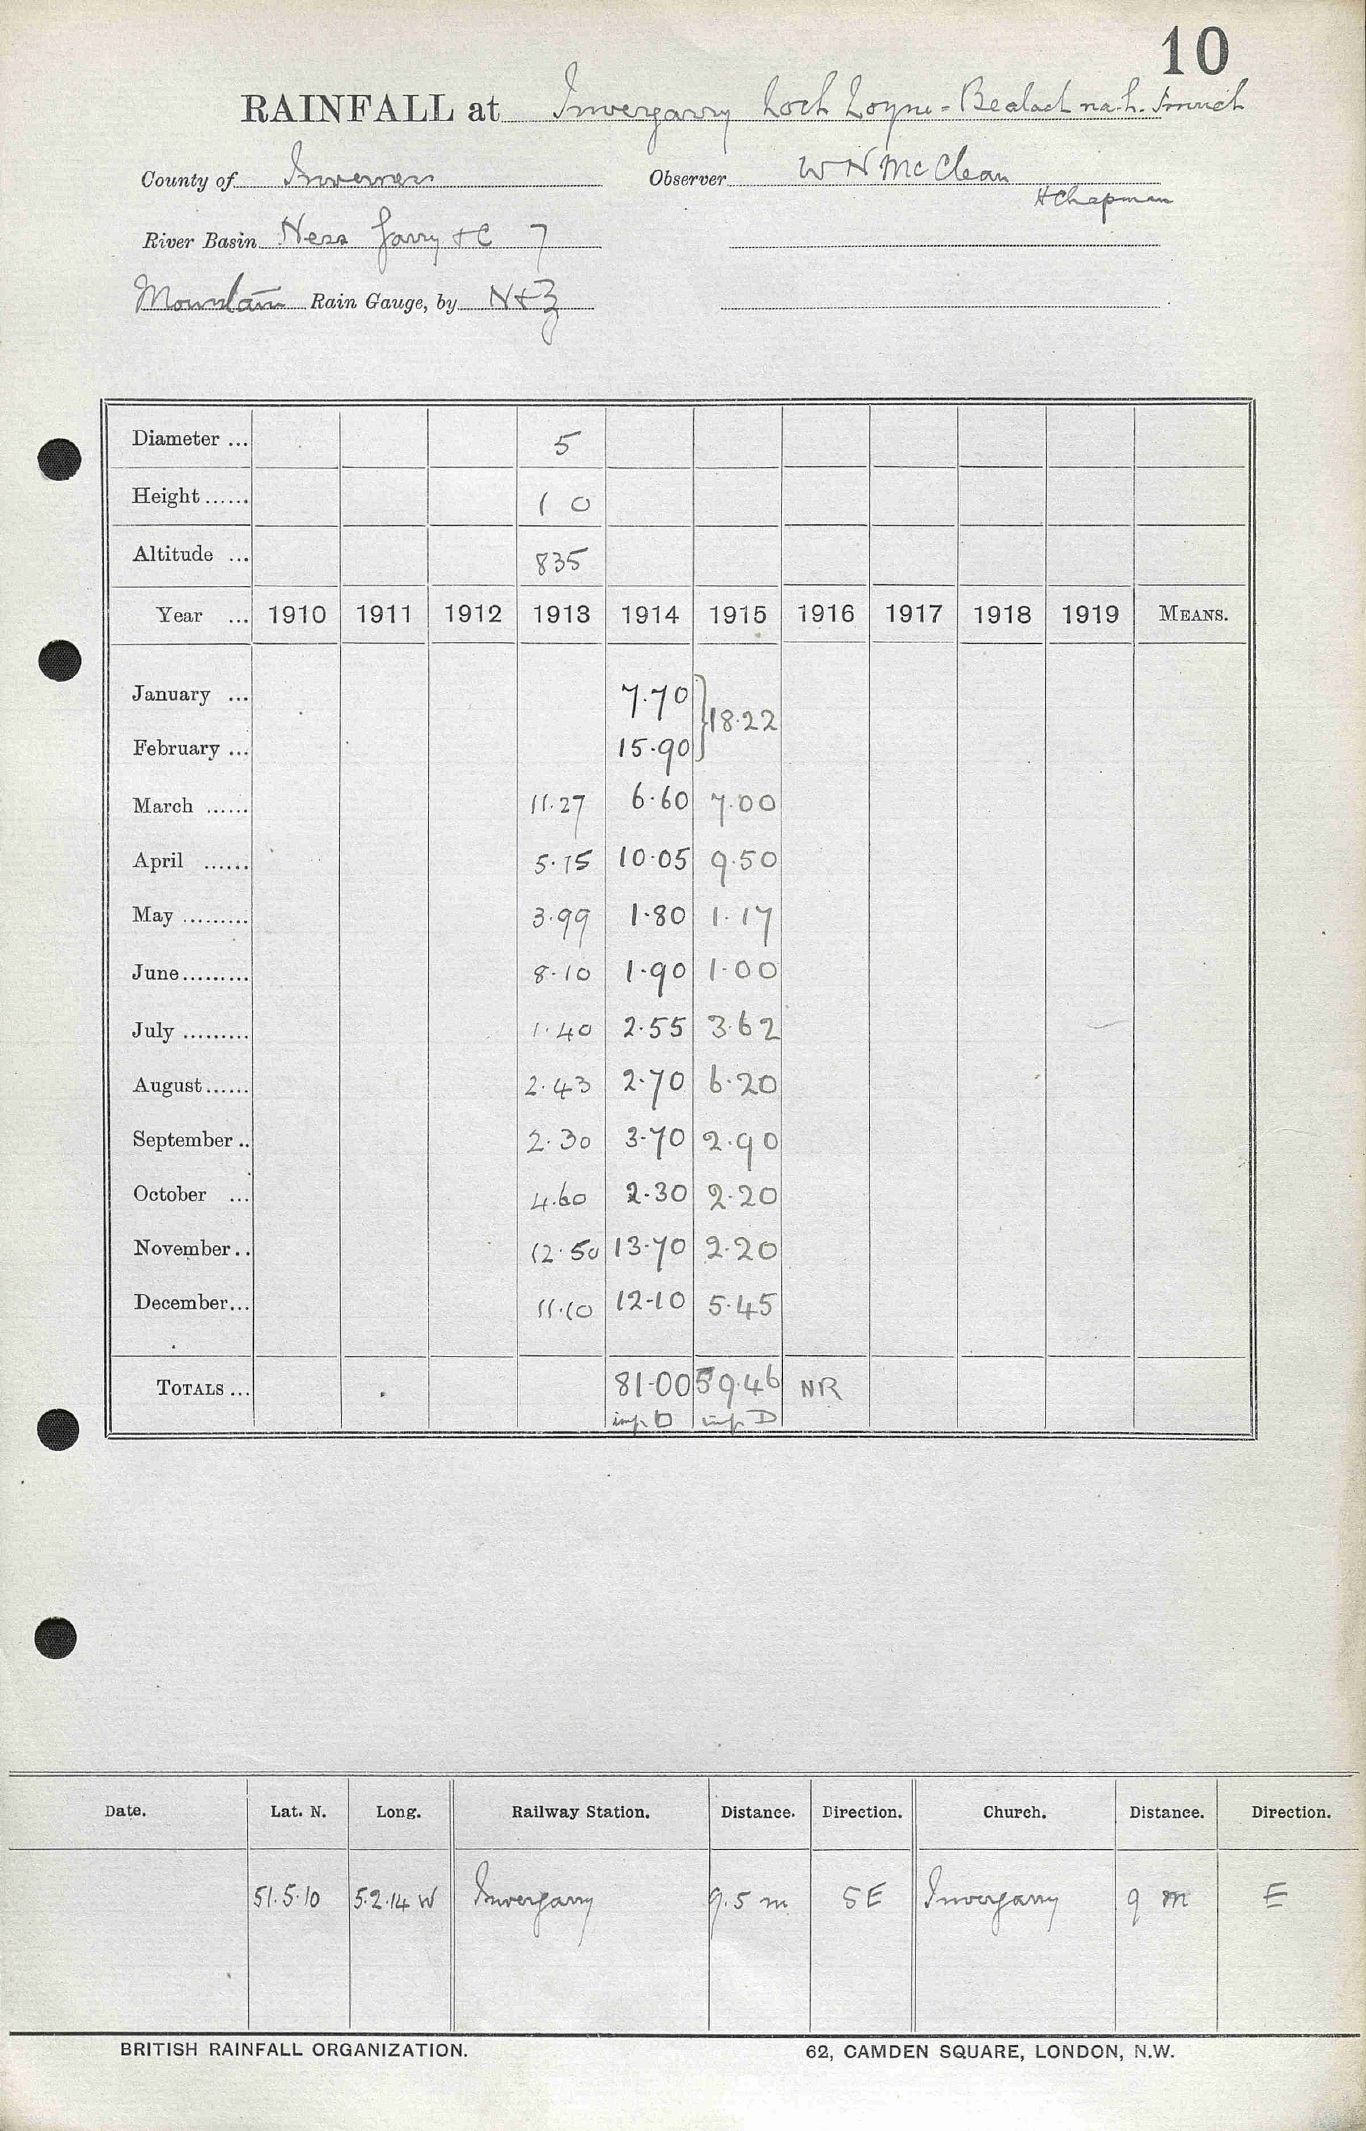 10
RAINFALL at Invergarry Loch Loyne - Bealach na h.
County of Inverness Observer W N McClean
H Chapman
River Basin Ness Garry + C 7
Mountain Rain Gauge, by N+Z
Diameter ... 5
Height ...... 1 0
Altitude ... 835
Year ... 1910 1911 1912 1913 1914 1915 1916 1917 1918 1919 MEANS.
January ... 7.70 } 18.22
February ... 15.90
March ...... 11.27 6.60 7.00
April ...... 5.15 10.05 9.50
May ......... 3.99 1.80 1.17
June ......... 8.10 1.90 1.00
July ......... 1.40 2.55 3.62
August ...... 2.43 2.70 6.20
September .. 2.30 3.70 2.90
October ... 4.60 2.30 2.20
November .. 12.50 13.70 2.20
December ... 11.10 12.10 5.45
TOTALS ... 81.00 59.46 NR
imp. D imp. D
Date. Lat. N. Long. Railway Station. Distance. Direction. Church. Distance. Direction.
51.5.10 5.2.14 W Invergarry 9.5 m SE Invergarry 9 m E
BRITISH RAINFALL ORGANIZATION. 62, CAMDEN SQUARE, LONDON, N.W.